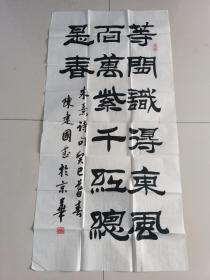 等閒識得東風
面萬紫千紅總
是春
朱熹詩句癸巳暮春
陳建國書於京華